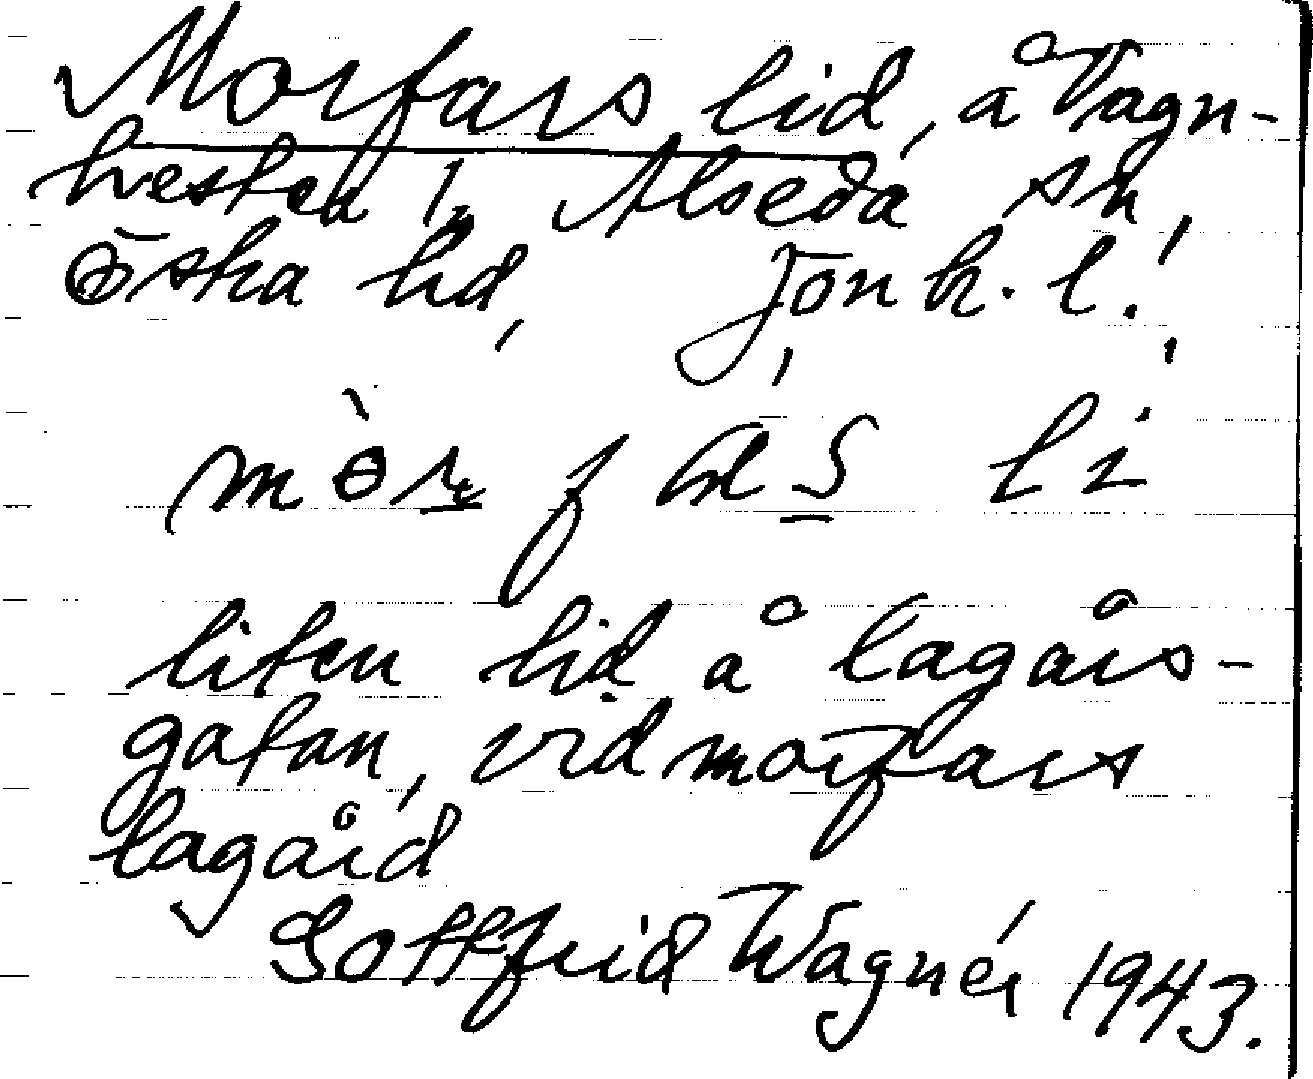 Morfars lid, å Tagn-
hester i Alseda sn,
östra hd, Jönk. l.
liten lid å lagårs-
gatan, vid morfars
lagård
Gottfrid Wagnér 1943.